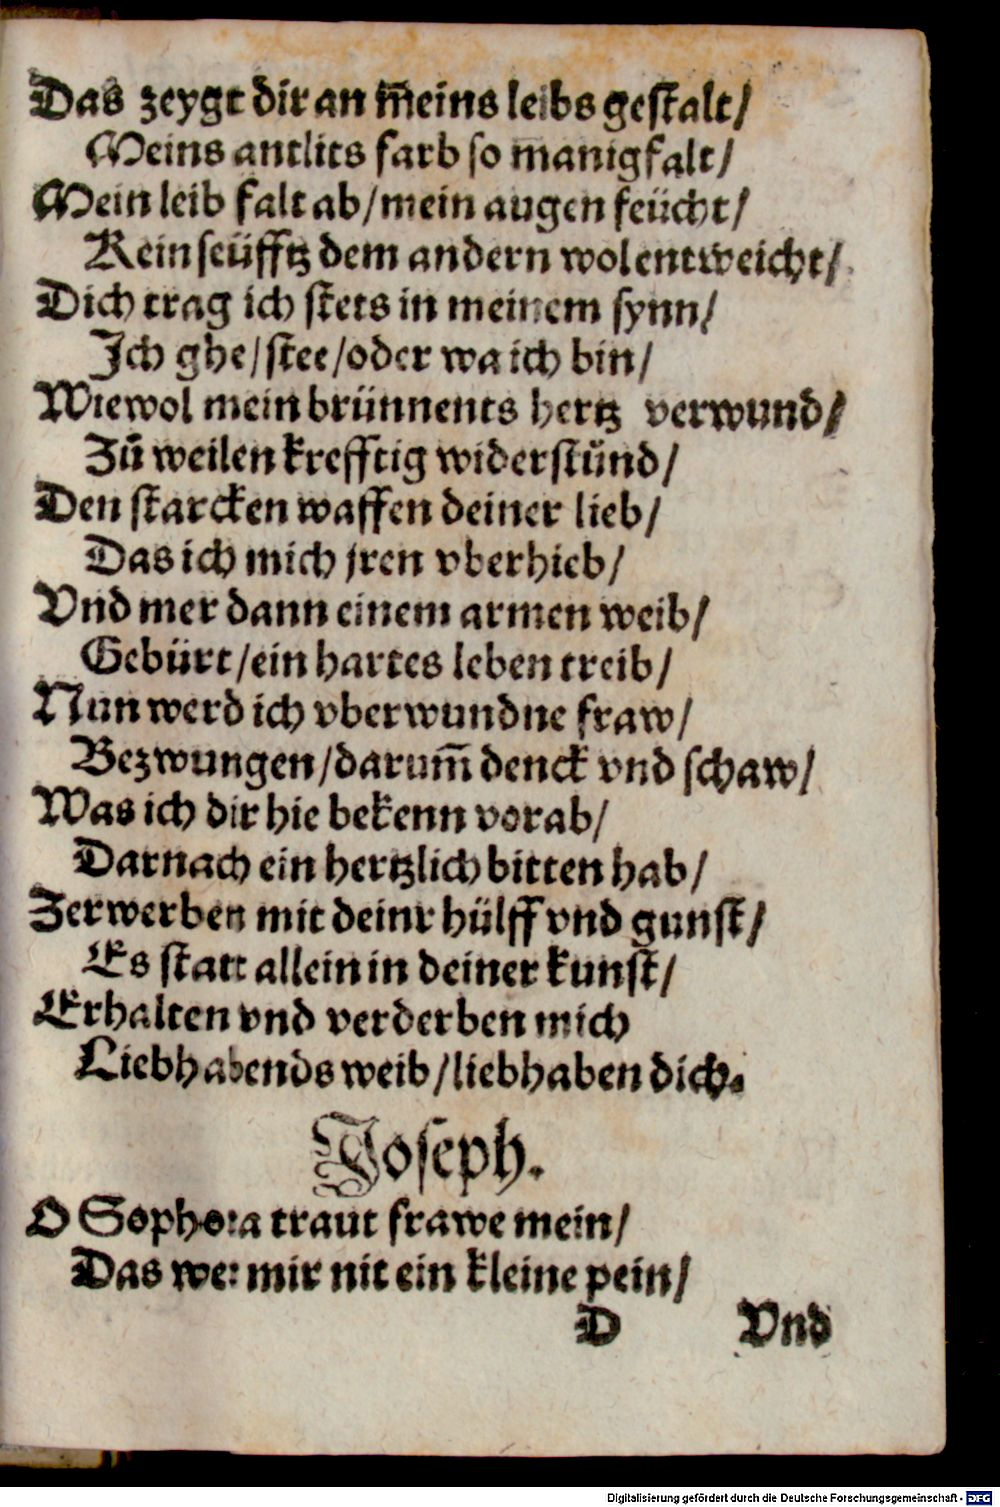 Das zeygt dir an m̃eins leibs gestalt/
Meins antlits farb so manigfalt/
Mein leib falt ab/mein augen feücht/
Kein seüfftz dem andern wol entweicht/
Dich trag ich stets in meinem synn/
Ich ghe/stee/oder wa ich bin/
Wiewol mein brünnents hertz verwund/
Zů weilen krefftig widerstůnd/
Den starcken waffen deiner lieb/
Das ich mich jren vberhieb/
Vnd mer dann einem armen weib/
Gebürt/ein hartes leben treib/
Nun werd ich vberwundne fraw/
Bezwungen/darum̃ denck vnd schaw/
Was ich dir hie bekenn vorab/
Darnach ein hertzlich bitten hab/
Zerwerben mit deinr hülff vnd gunst/
Es statt allein in deiner kunst/
Erhalten vnd verderben mich
Liebhabends weib/liebhaben dich.
Joseph.
O Sophora traut frawe mein/
Das wer mir nit ein kleine pein/
D Vnd
Digitalisierung gefördert durch die Deutsche Forschungsgemeinschaft - DFG